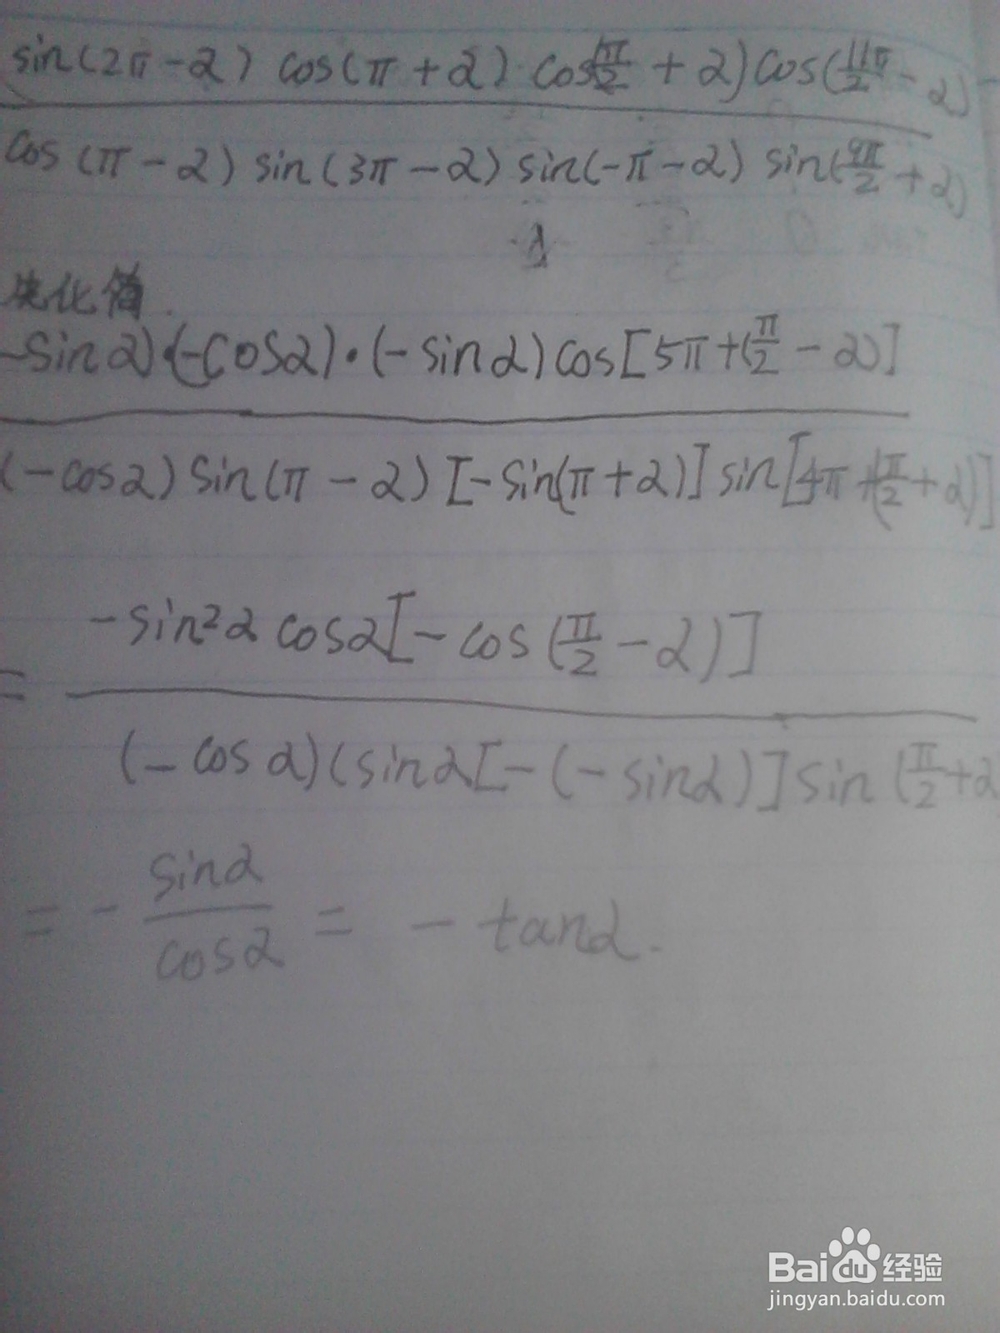 sin(2π-α) cos(π+α)·cos(π/2+α)cos(11π/2-α)
cos(π-α) sin(3π-α) sin(-π-α) sin(9π/2+α)
-sinα)·(-cosα)·(-sinα)cos[5π+(π/2-α)]
(-cosα) sin(π-α) [-sin(π+α)] sin[4π+(π/2+α)]
-sin²α cosα[-cos(π/2-α)]
=
(-cosα)(sinα[-(-sinα)]sin(π/2+α
= - sinα/cosα = -tanα.
Baidu经验
jingyan.baidu.com